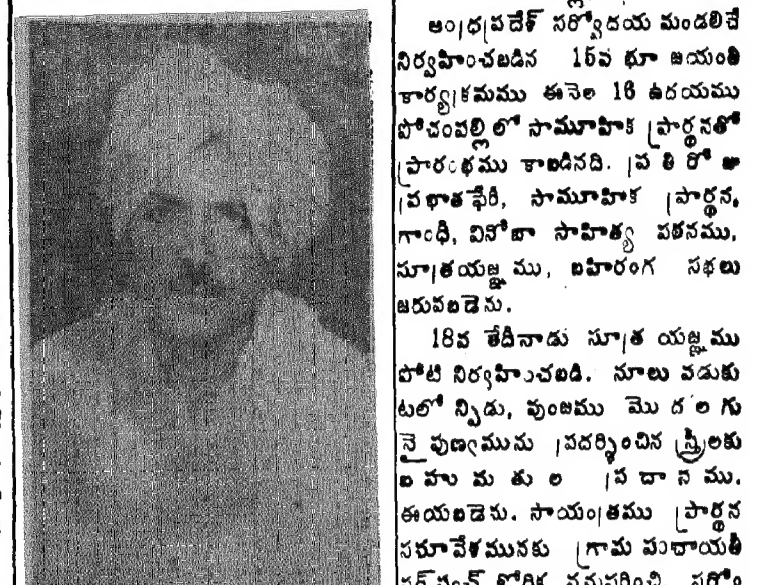 ఆంధ్రప్రదేశ్ సర్వోదయ మండలిచే
నిర్వహించబడిన 15వ భూ జయంతి
కార్యక్రమము ఈనెల 16 ఉదయము
పోచంపల్లిలో సామూహిక ప్రార్థనతో
ప్రారంభము కాబడినది. ప్ర తి రో జు
ప్రభాతఫేరీ, సామూహిక ప్రార్థన,
గాంధి, వినోబా సాహిత్య పఠనము,
సూత్రయజ్ఞము, బహిరంగ సభలు
జరుపబడెను.
18వ తేదీనాడు సూత్ర యజ్ఞము
పోటి నిర్వహించబడి. నూలు వడుకు
టలో స్పిడు, పుంజము మొ ద లగు
నైపుణ్యమును ప్రదర్శించిన స్త్రీలకు
బ హు మ తు ల ప్ర దా న ము.
ఈయబడెను. సాయంత్రము ప్రార్థన
సమావేశమునకు గ్రామ పంచాయతీ
కోరిక ననుసరించి